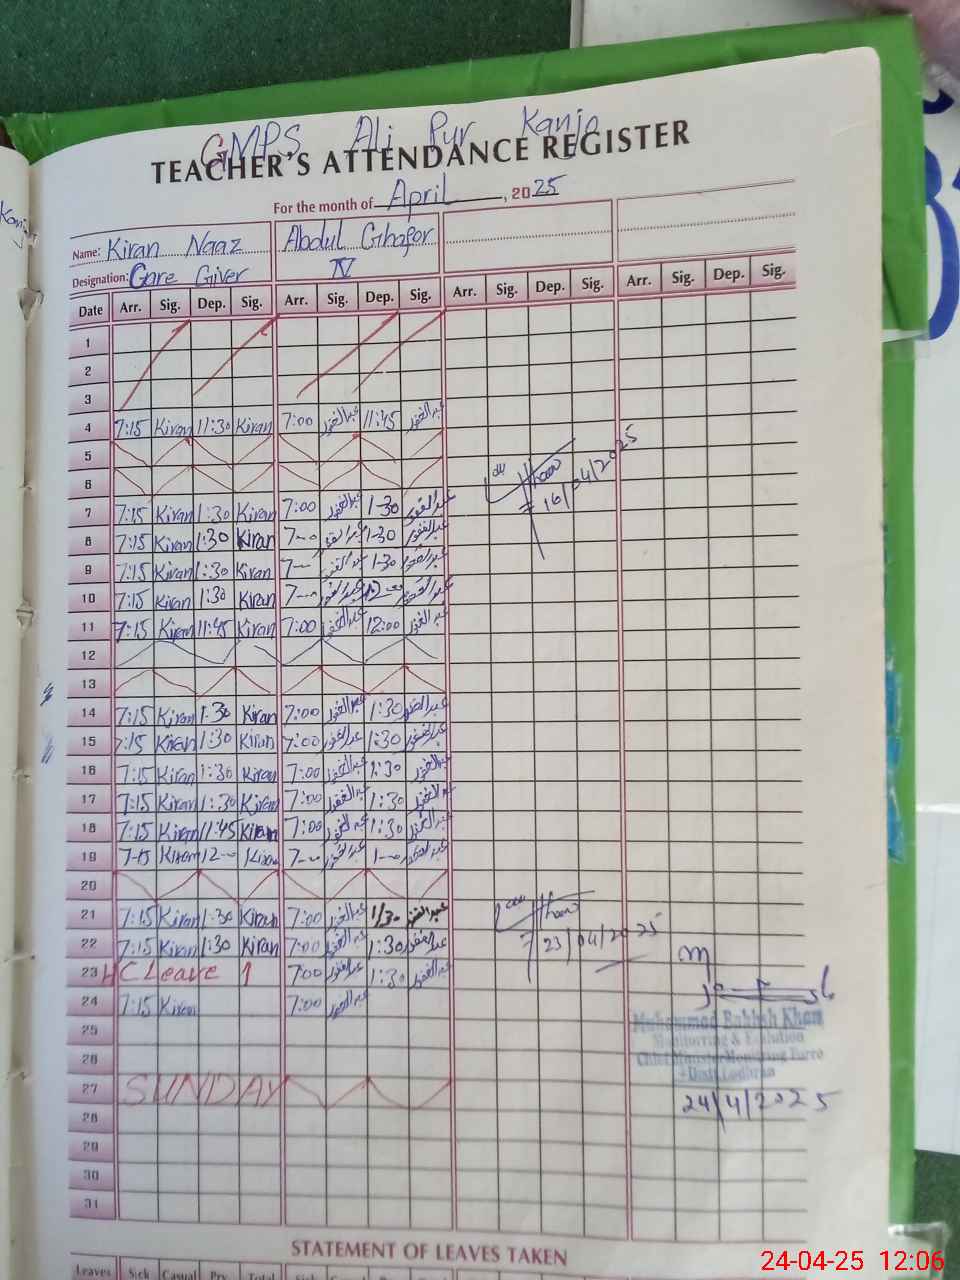 GMPS Ali Pur Kanjo
TEACHER'S ATTENDANCE REGISTER
For the month of April, 2025
Name: Kiran Naaz Abdul Ghafor
Designation: Care Giver IV
Date Arr. Sig. Dep. Sig. Arr. Sig. Dep. Sig. Arr. Sig. Dep. Sig. Arr. Sig. Dep. Sig.
1
2
3
4 7:15 Kiran 11:30 Kiran 7:00 عبدالغفور 11:45 عبدالغفور
5
6
7 7:15 Kiran 1:30 Kiran 7:00 عبدالغفور 1-30 عبدالغفور
16/04/2025
8 7:15 Kiran 1:30 Kiran 7-- عبدالغفور 1-30 عبدالغفور
9 7:15 Kiran 1:30 Kiran 7-- عبدالغفور 1-30 عبدالغفور
10 7:15 Kiran 1:30 Kiran 7-- عبدالغفور عبدالغفور
11 7:15 Kiran 11:45 Kiran 7:00 عبدالغفور 12:00 عبدالغفور
12
13
14 7:15 Kiran 1:30 Kiran 7:00 عبدالغفور 1:30 عبدالغفور
15 7:15 Kiran 1:30 Kiran 7:00 عبدالغفور 1:30 عبدالغفور
16 7:15 Kiran 1:30 Kiran 7:00 عبدالغفور 1:30 عبدالغفور
17 7:15 Kiran 1:30 Kiran 7:00 عبدالغفور 1:30 عبدالغفور
18 7:15 Kiran 11:45 Kiran 7:00 عبدالغفور 1:30 عبدالغفور
19 7-15 Kiran 12-- Kiran 7-- عبدالغفور 1-- عبدالغفور
20
21 7:15 Kiran 1:30 Kiran 7:00 عبدالغفور 1/30 عبدالغفور
22 7:15 Kiran 1:30 Kiran 7:00 عبدالغفور 1:30 عبدالغفور
23/04/2025
23 C Leave 1 7:00 عبدالغفور 1:30 عبدالغفور
24 7:15 Kiran 7:00 عبدالغفور
Khan
25
Monitoring &
26
Chief Minister Monitoring
Lodhran
27 SUNDAY
24/4/2025
28
29
30
31
STATEMENT OF LEAVES TAKEN
Leaves Sick Casual Total
24-04-25 12:06